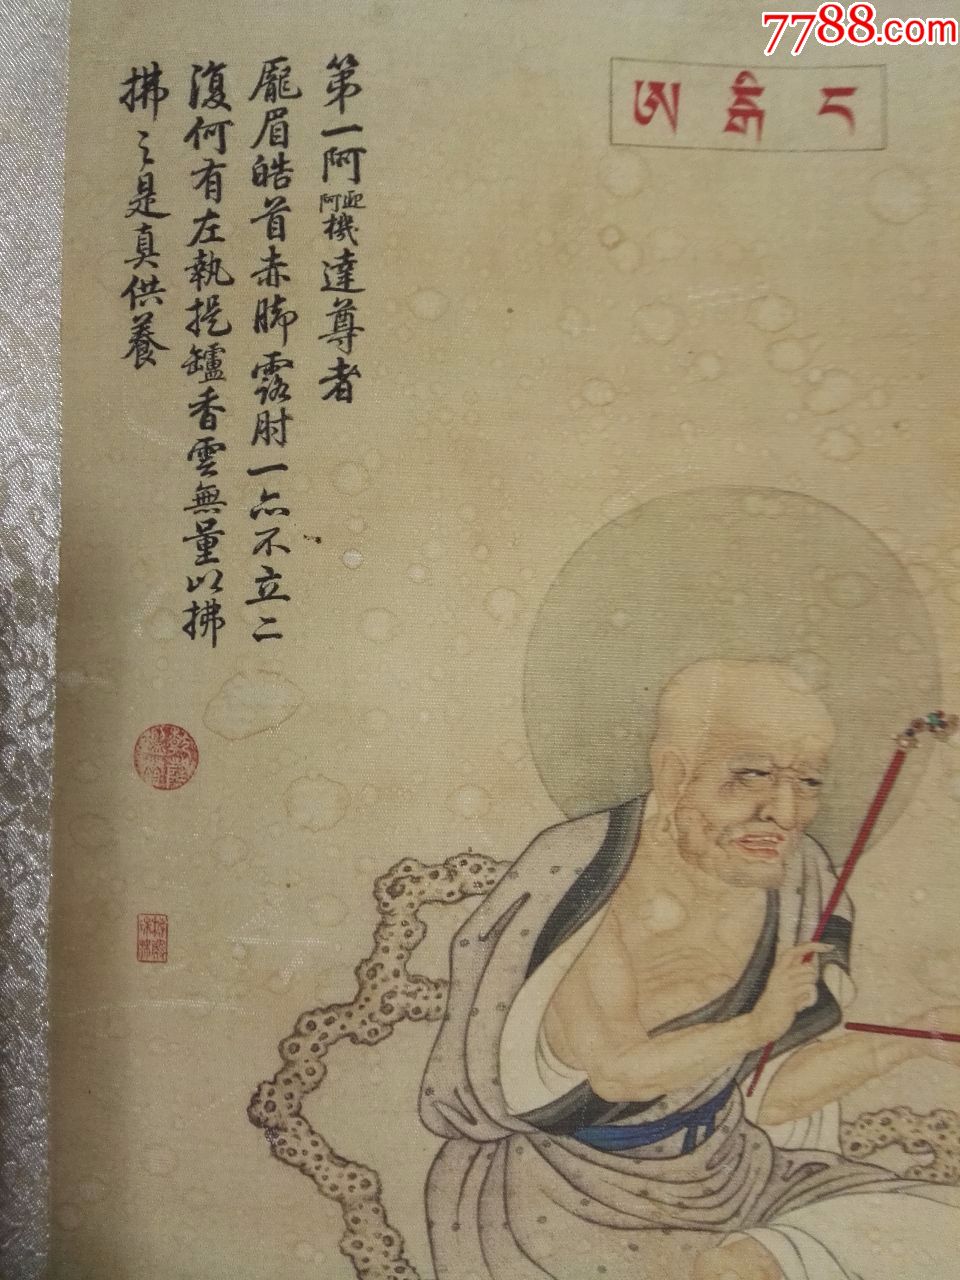 7788.com
ཨ ངྒི ད
第一阿迎阿機達尊者
龎眉皓首赤脚露肘一亦不立二
復何有左執提罏香雲無量以拂
拂〻是真供養